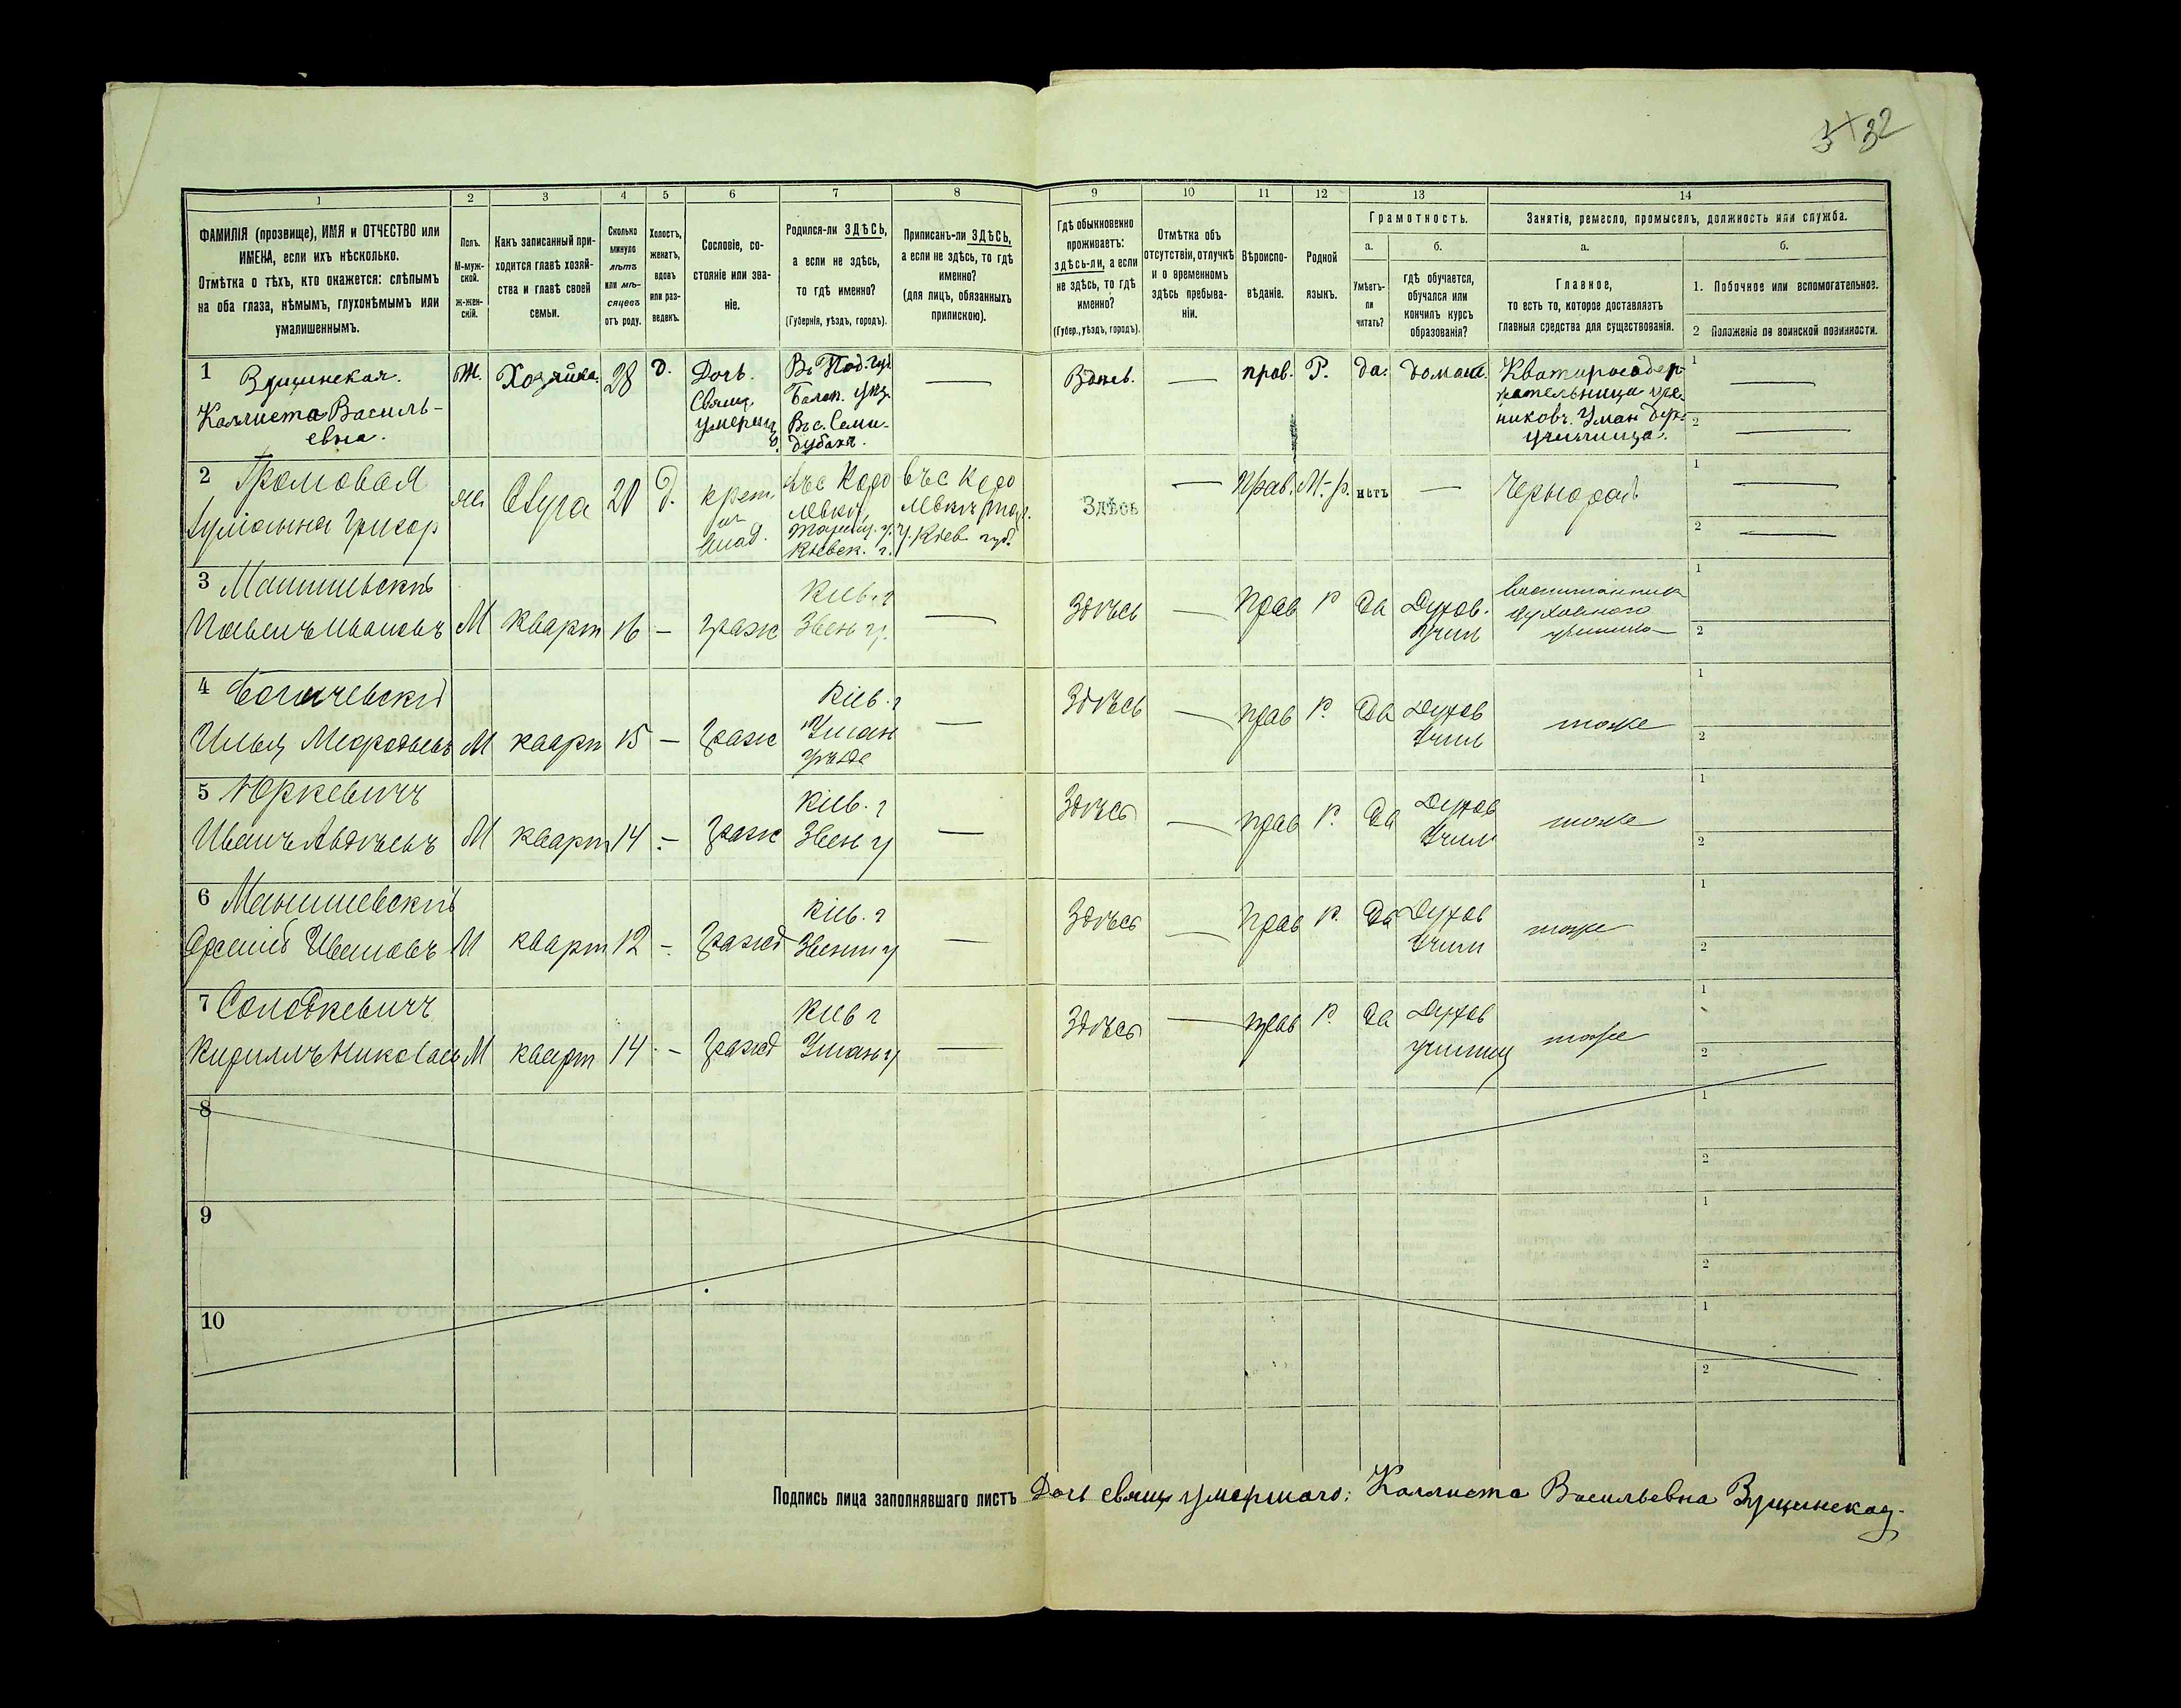 32
1 2 3 4 5 6 7 8 9 10 11 12 13 14
ФАМИЛІЯ (прозвище), ИМЯ и ОТЧЕСТВО или
ИМЕНА, если ихъ нѣсколько.
Отмѣтка о тѣхъ, кто окажется: слѣпымъ
на оба глаза, нѣмымъ, глухонѣмымъ или
умалишеннымъ.
Полъ.
М-муж-
ской.
ж-жен-
скій.
Какъ записанный при-
ходится главѣ хозяй-
ства и главѣ своей
семьи.
Сколько
минуло
лѣтъ
или мѣ-
сяцевъ
отъ роду.
Холостъ,
женатъ,
вдовъ
или раз-
веденъ.
Сословіе, со-
стояніе или зва-
ніе.
Родился-ли ЗДѢСЬ,
а если не здѣсь,
то гдѣ именно?
(Губернія, уѣздъ, городъ).
Приписанъ-ли ЗДѢСЬ,
а если не здѣсь, то гдѣ
именно?
(для лицъ, обязанныхъ
припискою).
Гдѣ обыкновенно
проживаетъ:
здѣсь-ли, а если
не здѣсь, то гдѣ
именно?
(Губер., уѣздъ, городъ).
Отмѣтка объ
отсутствіи, отлучкѣ
и о временномъ
здѣсь пребыва-
ніи.
Вѣроиспо-
вѣданіе.
Родной
языкъ.
Грамотность.
а.
Умѣетъ-
ли
читать?
б.
гдѣ обучается,
обучался или
кончилъ курсъ
образованія?
Занятіе, ремесло, промыселъ, должность или служба.
а.
Главное,
то есть то, которое доставляетъ
главныя средства для существованія.
б.
1. Побочное или вспомогательное.
2 Положеніе по воинской повинности.
1 Вущинская.
Каллиста Василь-
евна.
Ж. Хозяйка. 28 д.
Дочь.
Свящ.
умерш
Въ Под. гу.
Балт. уѣз.
Въ с. Семи-
дубахъ.
— Здѣсь. — прав. Р. да. дома.
Квартиросодер-
жательница уче-
никовъ. Уман. дух.
училища.
1 —
2 —
2 Громовая
Григор
Слуга 20 д.
крест.
въ с Кодо
Кіевск. г.
въ с Кодо
у. Кіев губ.
Здѣсь — Прав. М.-р. нѣтъ —
1 —
2 —
3
Иванов
М кварт 16 — граж
Кіев. г
Звен у.
— Здѣсь — Прав р да
Духов.
Учил
воспитанник
духовного
1
2
4
М кварт 15 — граж
Кіев. г
Уман
уѣзда
— Здѣсь — прав р. да
Духов
Учил
тоже
1
2
5 Юркевичъ
Иванъ
М кварт 14 — граж
Кіев. г
Звен у
— Здѣсь — прав р. да
Духов
Учил
тоже
1
2
6
Иванов
М кварт 12 — гражд
Кіев. г
Звен у
— Здѣсь — Прав р. да
Духов
Учил
тоже
1
2
7 Солодкевичъ
Кириллъ Николаев
М кварт 14 — гражд
Кіев г
Уман у
— Здѣсь — прав р. да
Духов
училищ
тоже
1
2
8
1
2
9
1
2
10
1
2
Подпись лица заполнявшаго листъ Дочь свящ умершаго: Каллиста Васильевна Вущинская.